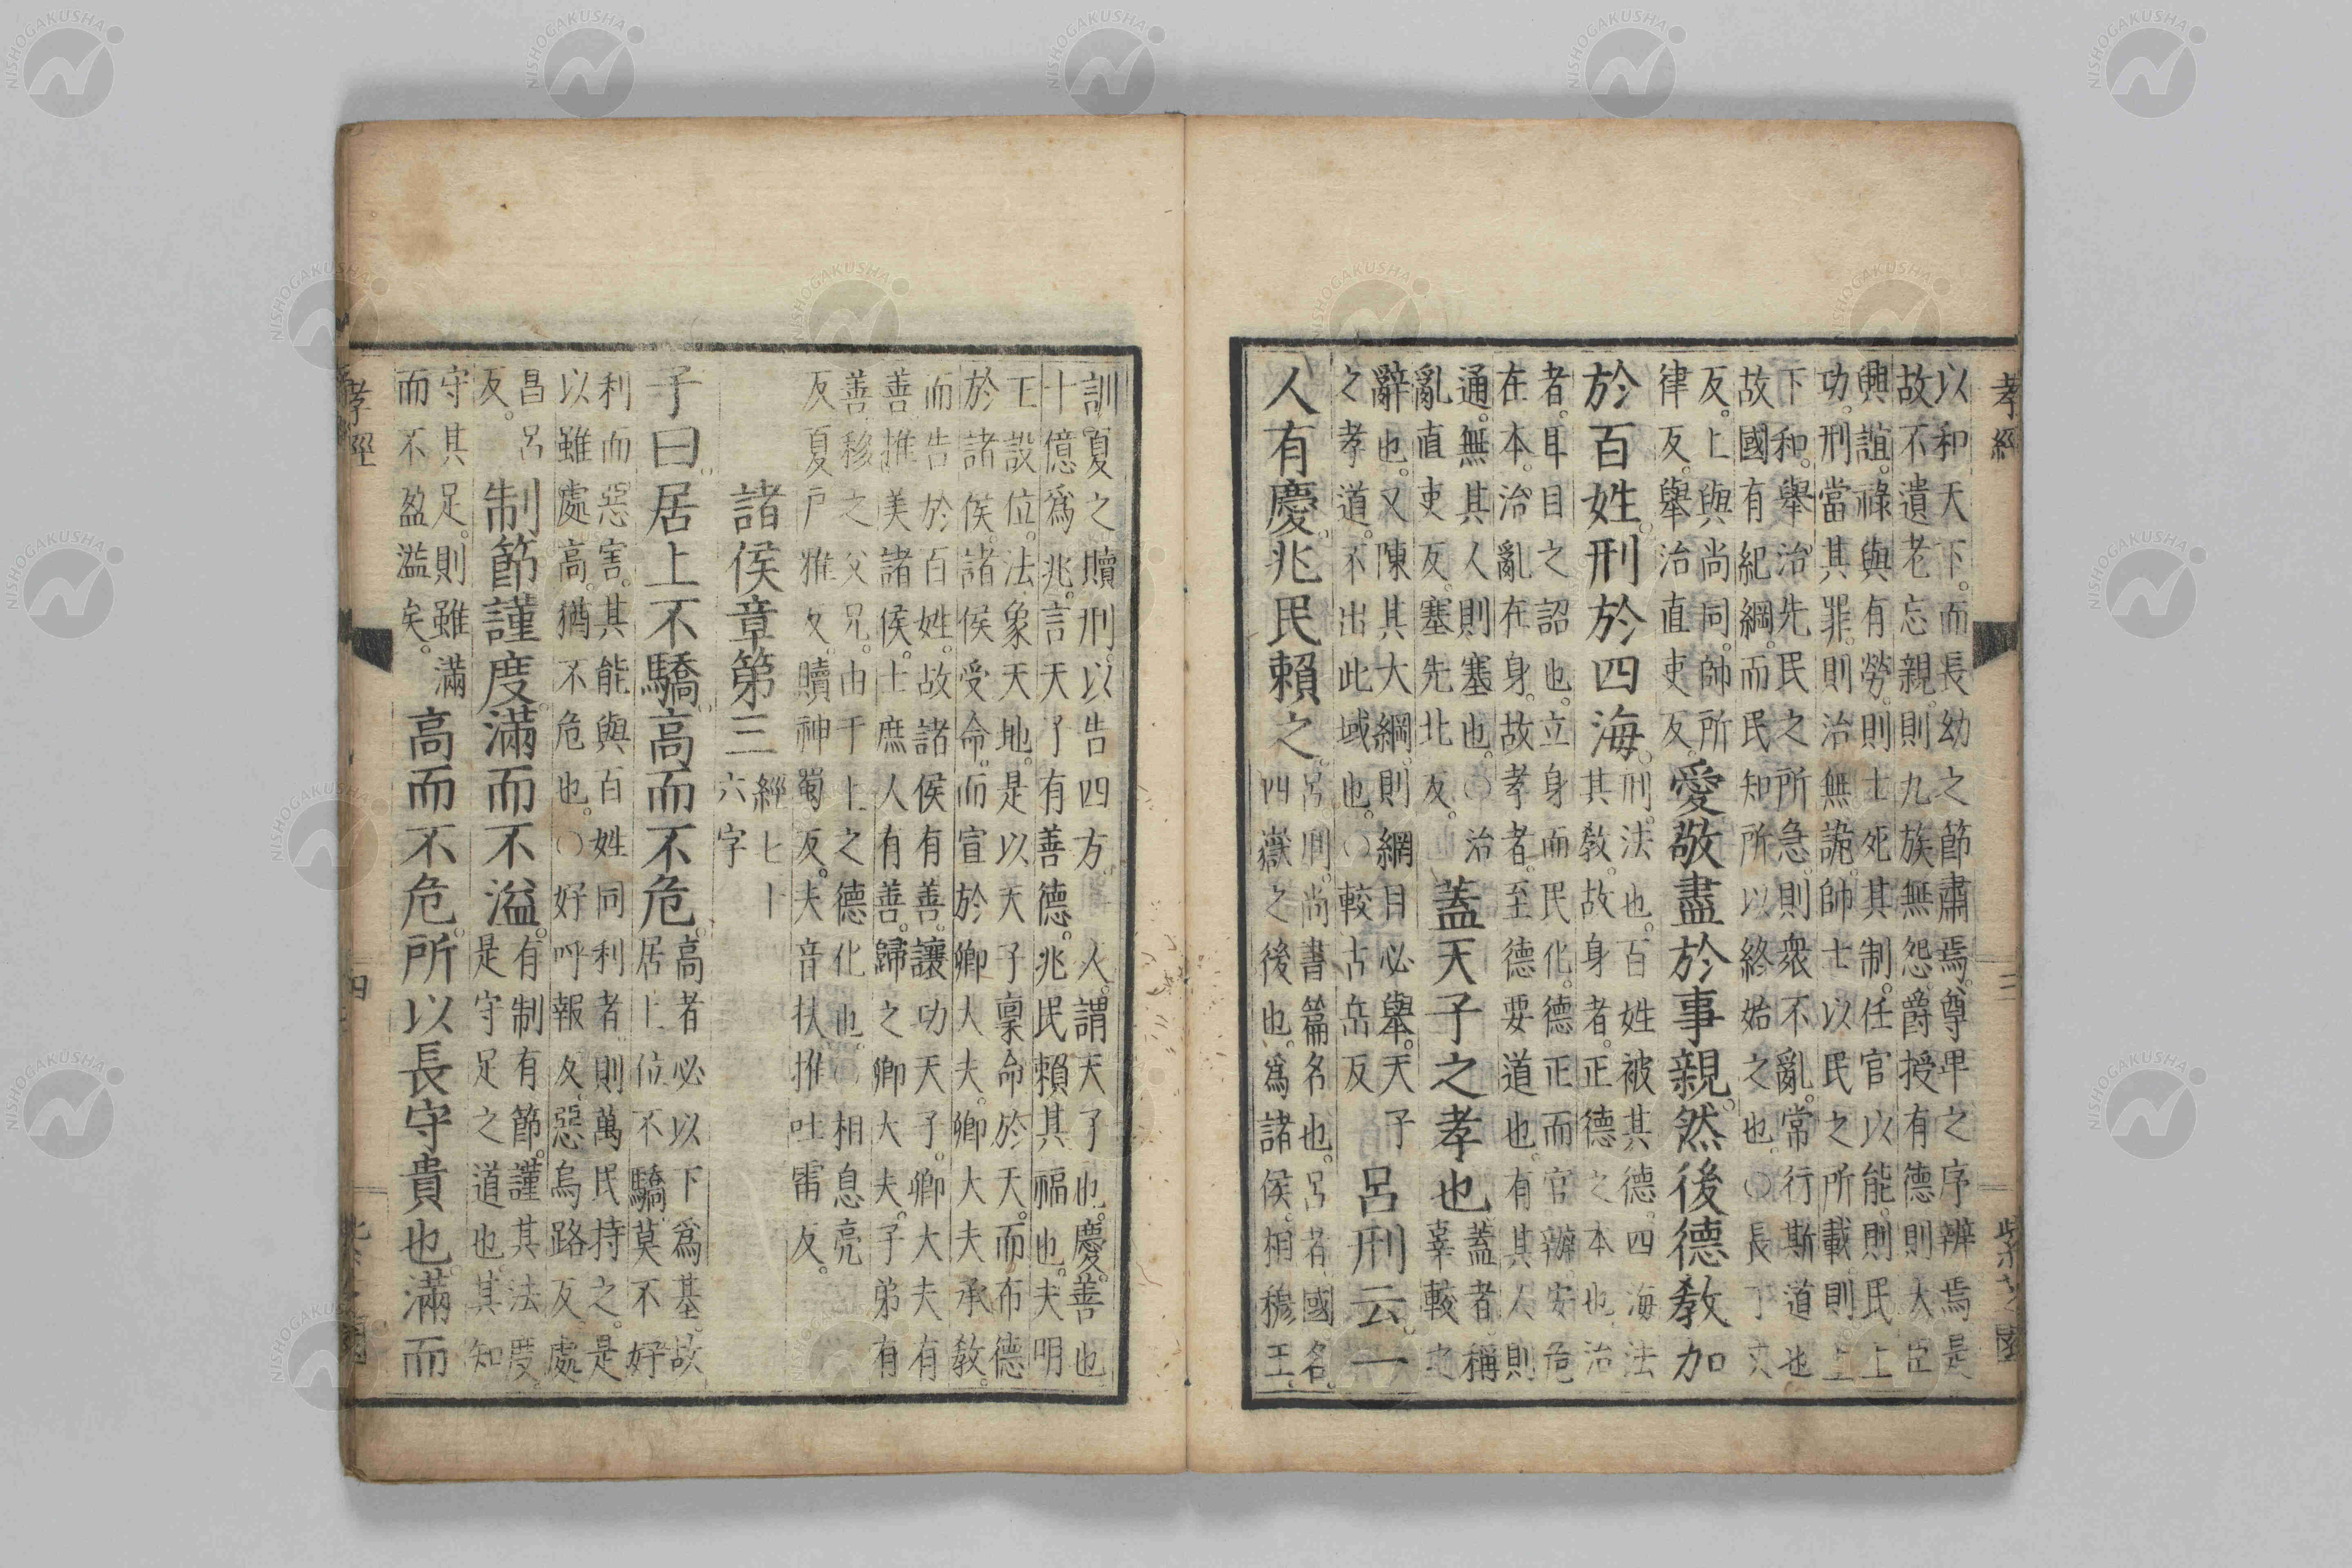 孝經
三
以和天下。而長幼之節肅焉。尊卑之序辨焉是
故不遺老忘親。則九族無怨。爵授有德則大臣
興誼。祿與有勞。則士死其制。任官以能。則民上
功。刑當其罪。則治無詭。帥士以民之所載。則上
下和。舉治先民之所急。則衆不亂。常行斯道也
故國有紀綱。而民知所以終始之也。○長丁丈
反。上與尚同。帥所
律反。舉治直吏反。
愛敬盡於事親。然後德教加
於百姓。刑於四海。
刑。法也。百姓被其德。四海法
其教。故身者。正德之本也。治
者。耳目之詔也。立身而民化。德正而官辦。安危
在本。治亂在身。故孝者。至德要道也。有其人則
通。無其人則塞也。○治
亂直吏反。塞先北反。
蓋天子之孝也
蓋者。稱
辜較之
辭也。又陳其大綱。則綱目必舉。天子
之孝道。不出此域也。○較古岳反
呂刑云。一
人有慶。兆民賴之。
呂刑。尚書篇名也。呂者。國名。
四嶽之後也。爲諸侯。相穆王。
訓夏之贖刑。以告四方。一人。謂天子也。慶。善也
十億爲兆。言天子有善德。兆民賴其福也。夫明
王設位。法象天地。是以天子稟命於天。而布德
於諸侯。諸侯受命。而宣於卿大夫。卿大夫承教。
而告於百姓。故諸侯有善。讓功天子。卿大夫有
善。推美諸侯。士庶人有善。歸之卿大夫。子弟有
善。移之父兄。由于上之德化也。○相息亮
反夏戸雅反。贖神蜀反。夫音扶推吐雷反。
諸侯章第三
經七十
六字
子曰。居上不驕。高而不危。
高者必以下爲基。故
居上位不驕。莫不好
利而惡害。其能與百姓同利者。則萬民持之。是
以雖處高。猶不危也。○好呼報反。惡烏路反處
昌呂
反。
制節謹度。滿而不溢。
有制有節。謹其法度。
是守足之道也。其知
守其足。則雖滿
而不盈溢矣。
高而不危。所以長守貴也。滿而
孝經
四